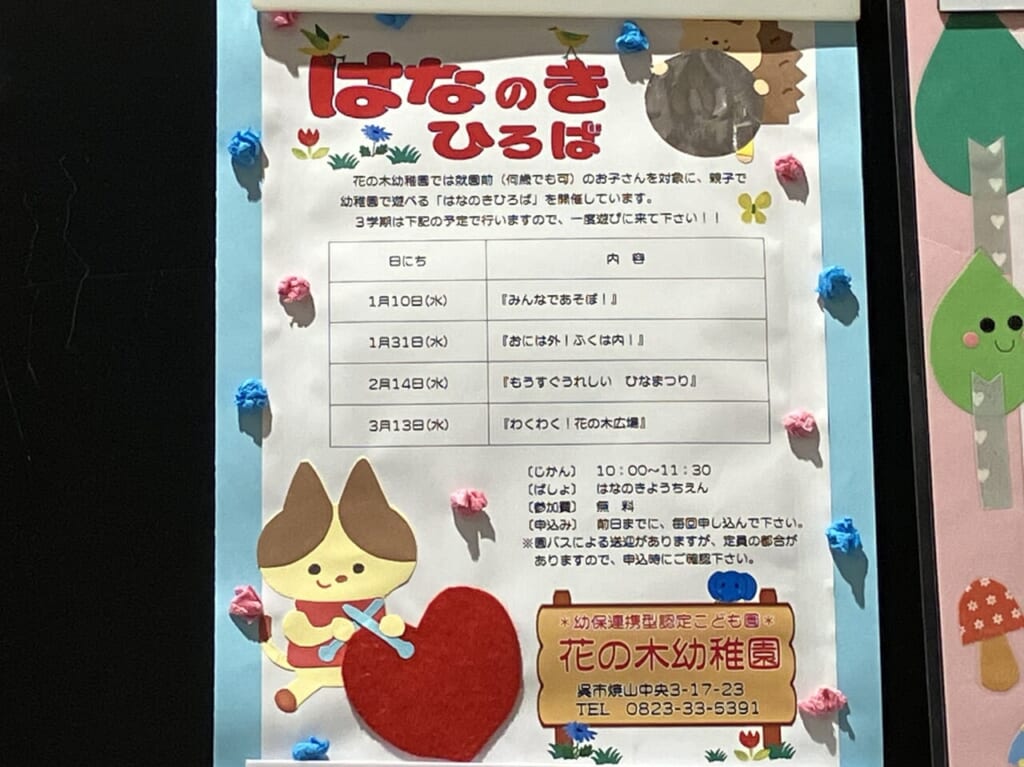 はなのき
ひろば
花の木幼稚園では就園前（何歳でも可）のお子さんを対象に、親子で
幼稚園で遊べる「はなのきひろば」を開催しています。
3学期は下記の予定で行いますので、一度遊びに来て下さい！！
日にち　内　容
1月10日(水)　『みんなであそぼ！』
1月31日(水)　『おには外！ふくは内！』
2月14日(水)　『もうすぐうれしい　ひなまつり』
3月13日(水)　『わくわく！花の木広場』
〔じかん〕　10：00～11：30
〔ばしょ〕　はなのきようちえん
〔参加費〕　無　料
〔申込み〕　前日までに、毎回申し込んで下さい。
※園バスによる送迎がありますが、定員の都合が
ありますので、申込時にご確認下さい。
＊幼保連携型認定こども園＊
花の木幼稚園
呉市焼山中央3-17-23
TEL　0823-33-5391